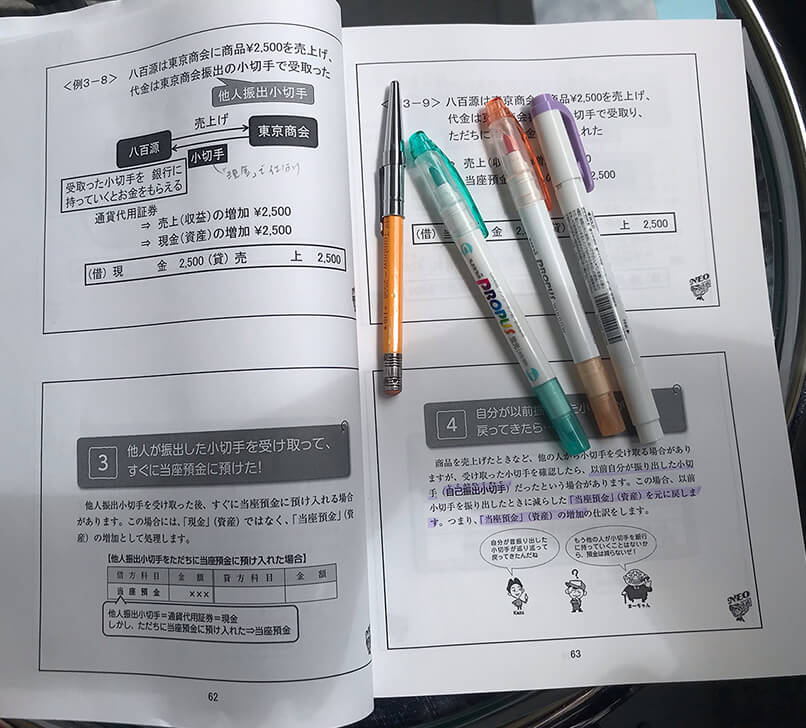 〈例3-8〉 八百源は東京商会に商品¥2,500を売上げ、
代金は東京商会振出の小切手で受取った
他人振出小切手
売上げ
八百源
東京商会
小切手
受取った小切手を 銀行に
持っていくとお金をもらえる
通貨代用証券
⇒ 売上(収益)の増加 ¥2,500
⇒ 現金(資産)の増加 ¥2,500
(借) 現 金 2,500 (貸) 売 上 2,500
3
他人が振出した小切手を受け取って、
すぐに当座預金に預けた!
他人振出小切手を受け取った後、すぐに当座預金に預け入れる場合
があります。この場合には、「現金」(資産)ではなく、「当座預金」(資
産)の増加として処理します。
【他人振出小切手をただちに当座預金に預け入れた場合】
借方科目 金額 貸方科目 金額
当座預金 ×××
他人振出小切手=通貨代用証券=現金
しかし、ただちに当座預金に預け入れた⇒当座預金
62
3-9〉 八百源は東京商会 商品¥2,500を売上げ、
代金は東 小切手で受取り、
ただちに れた
⇒ 売上(収
⇒ 当座預
(借) 当 上 2,500
NEO
4
自分が以前振
戻ってきたら
商品を売上げたときなど、他の人から小切手を受ける場合があり
ますが、受け取った小切手を確認したら、以前自分が振り出した小切
手(自己振出小切手)だったという場合があります。この場合、以前
小切手を振り出したときに減らした「当座預金」(資産)を元に戻しま
す。つまり、「当座預金」(資産)の増加の仕訳をします。
自分が昔振り出した
小切手が巡り巡って
戻ってきたんだね
もう他の人が小切手を銀行
に持っていくことはないか
ら、預金は減らないぜ!
Kazu
?
まーちゃん
NEO
63
PROPUS
PROPUS